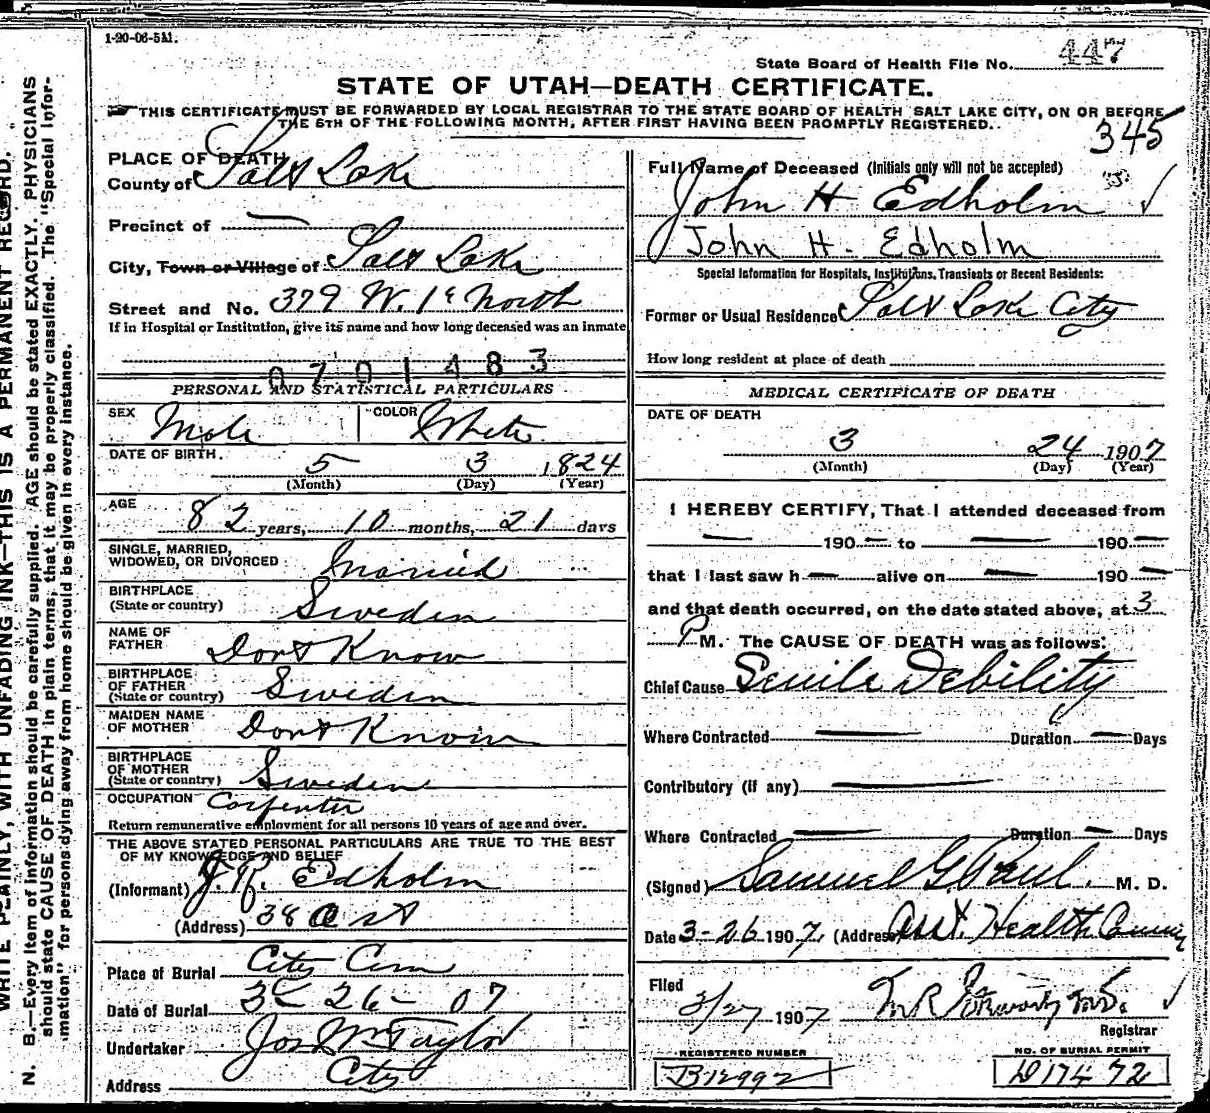 1-20-06-5M.
State Board of Health File No. 447
STATE OF UTAH—DEATH CERTIFICATE.
THIS CERTIFICATE MUST BE FORWARDED BY LOCAL REGISTRAR TO THE STATE BOARD OF HEALTH SALT LAKE CITY, ON OR BEFORE
THE 5TH OF THE FOLLOWING MONTH, AFTER FIRST HAVING BEEN PROMPTLY REGISTERED.
345
PLACE OF DEATH
County of Salt Lake
Precinct of —
City, Town or Village of Salt Lake
Street and No. 379 W. 1st North
If in Hospital or Institution, give its name and how long deceased was an inmate
0701483
PERSONAL AND STATISTICAL PARTICULARS
SEX Male COLOR White
DATE OF BIRTH 5 3 1824
(Month) (Day) (Year)
AGE
82 years, 10 months, 21 days
SINGLE, MARRIED,
WIDOWED, OR DIVORCED Married
BIRTHPLACE
(State or country) Sweden
NAME OF
FATHER Dont Know
BIRTHPLACE
OF FATHER
(State or country) Sweden
MAIDEN NAME
OF MOTHER Dont Know
BIRTHPLACE
OF MOTHER
(State or country) Sweden
OCCUPATION Carpenter
Return remunerative employment for all persons 10 years of age and over.
THE ABOVE STATED PERSONAL PARTICULARS ARE TRUE TO THE BEST
OF MY KNOWLEDGE AND BELIEF
(Informant) J. R. Edholm
(Address) 38 a st
Place of Burial City Cem
Date of Burial 3-26-07
Undertaker Jos Wm Taylor
Address City
Full Name of Deceased (Initials only will not be accepted)
John H Edholm
John H. Edholm
Special Information for Hospitals, Institutions, Transients or Recent Residents:
Former or Usual Residence Salt Lake City
How long resident at place of death
MEDICAL CERTIFICATE OF DEATH
DATE OF DEATH
3 24 1907
(Month) (Day) (Year)
I HEREBY CERTIFY, That I attended deceased from
— 190 — to — 190 —
that I last saw h — alive on — 190 —
and that death occurred, on the date stated above, at 3
P M. The CAUSE OF DEATH was as follows:
Chief Cause Senile Debility
Where Contracted — Duration — Days
Contributory (if any) —
Where Contracted — Duration — Days
(Signed) Samuel G. Paul. M. D.
Date 3-26 1907, (Address) Asst. Health Commr
Filed
3/27 1907
Registrar
REGISTERED NUMBER
B12992
NO. OF BURIAL PERMIT
D17472
N. B.—Every item of information should be carefully supplied. AGE should be stated EXACTLY. PHYSICIANS
should state CAUSE OF DEATH in plain terms, that it may be properly classified. The "Special Infor-
mation" for persons dying away from home should be given in every instance.
WRITE PLAINLY, WITH UNFADING INK—THIS IS A PERMANENT RECORD.